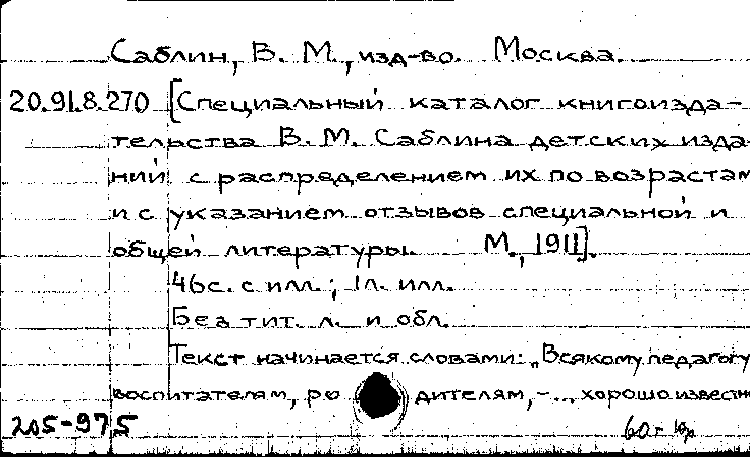 Саблин, В. М., изд-во. Москва.
20.91.8.270 [Специальный каталог книгоизда-
тельства В. М. Саблина детских изда-
ний с распределением их по возрастам
и с указанием отзывов специальной и
общей литературы. М., 1911].
46с. с илл.; 1л. илл.
Без тит. л. и обл.
Текст начинается словами: „Всякому педагогу
воспитателям, ро дителям, -..., хорошо известн
205-975
60г